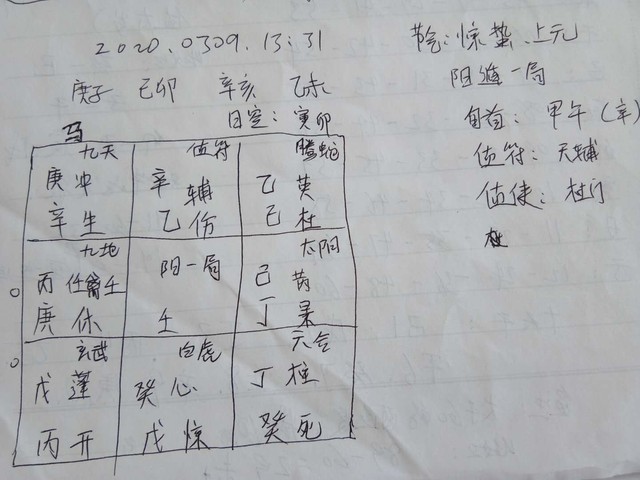 2020.0309.13:31
节气:惊蛰.上元
庚子 己卯 辛亥 乙未
阳遁一局
日空:寅卯
旬首:甲午(辛)
马
值符:天辅
值使:杜门
杜
九天 值符 腾蛇
庚冲 辛辅 乙英
辛生 乙伤 己杜
九地 太阴
丙任 壬 阳一局 己芮
庚休 壬 丁景
玄武 白虎 六合
戊蓬 癸心 丁柱
丙开 戊惊 癸死